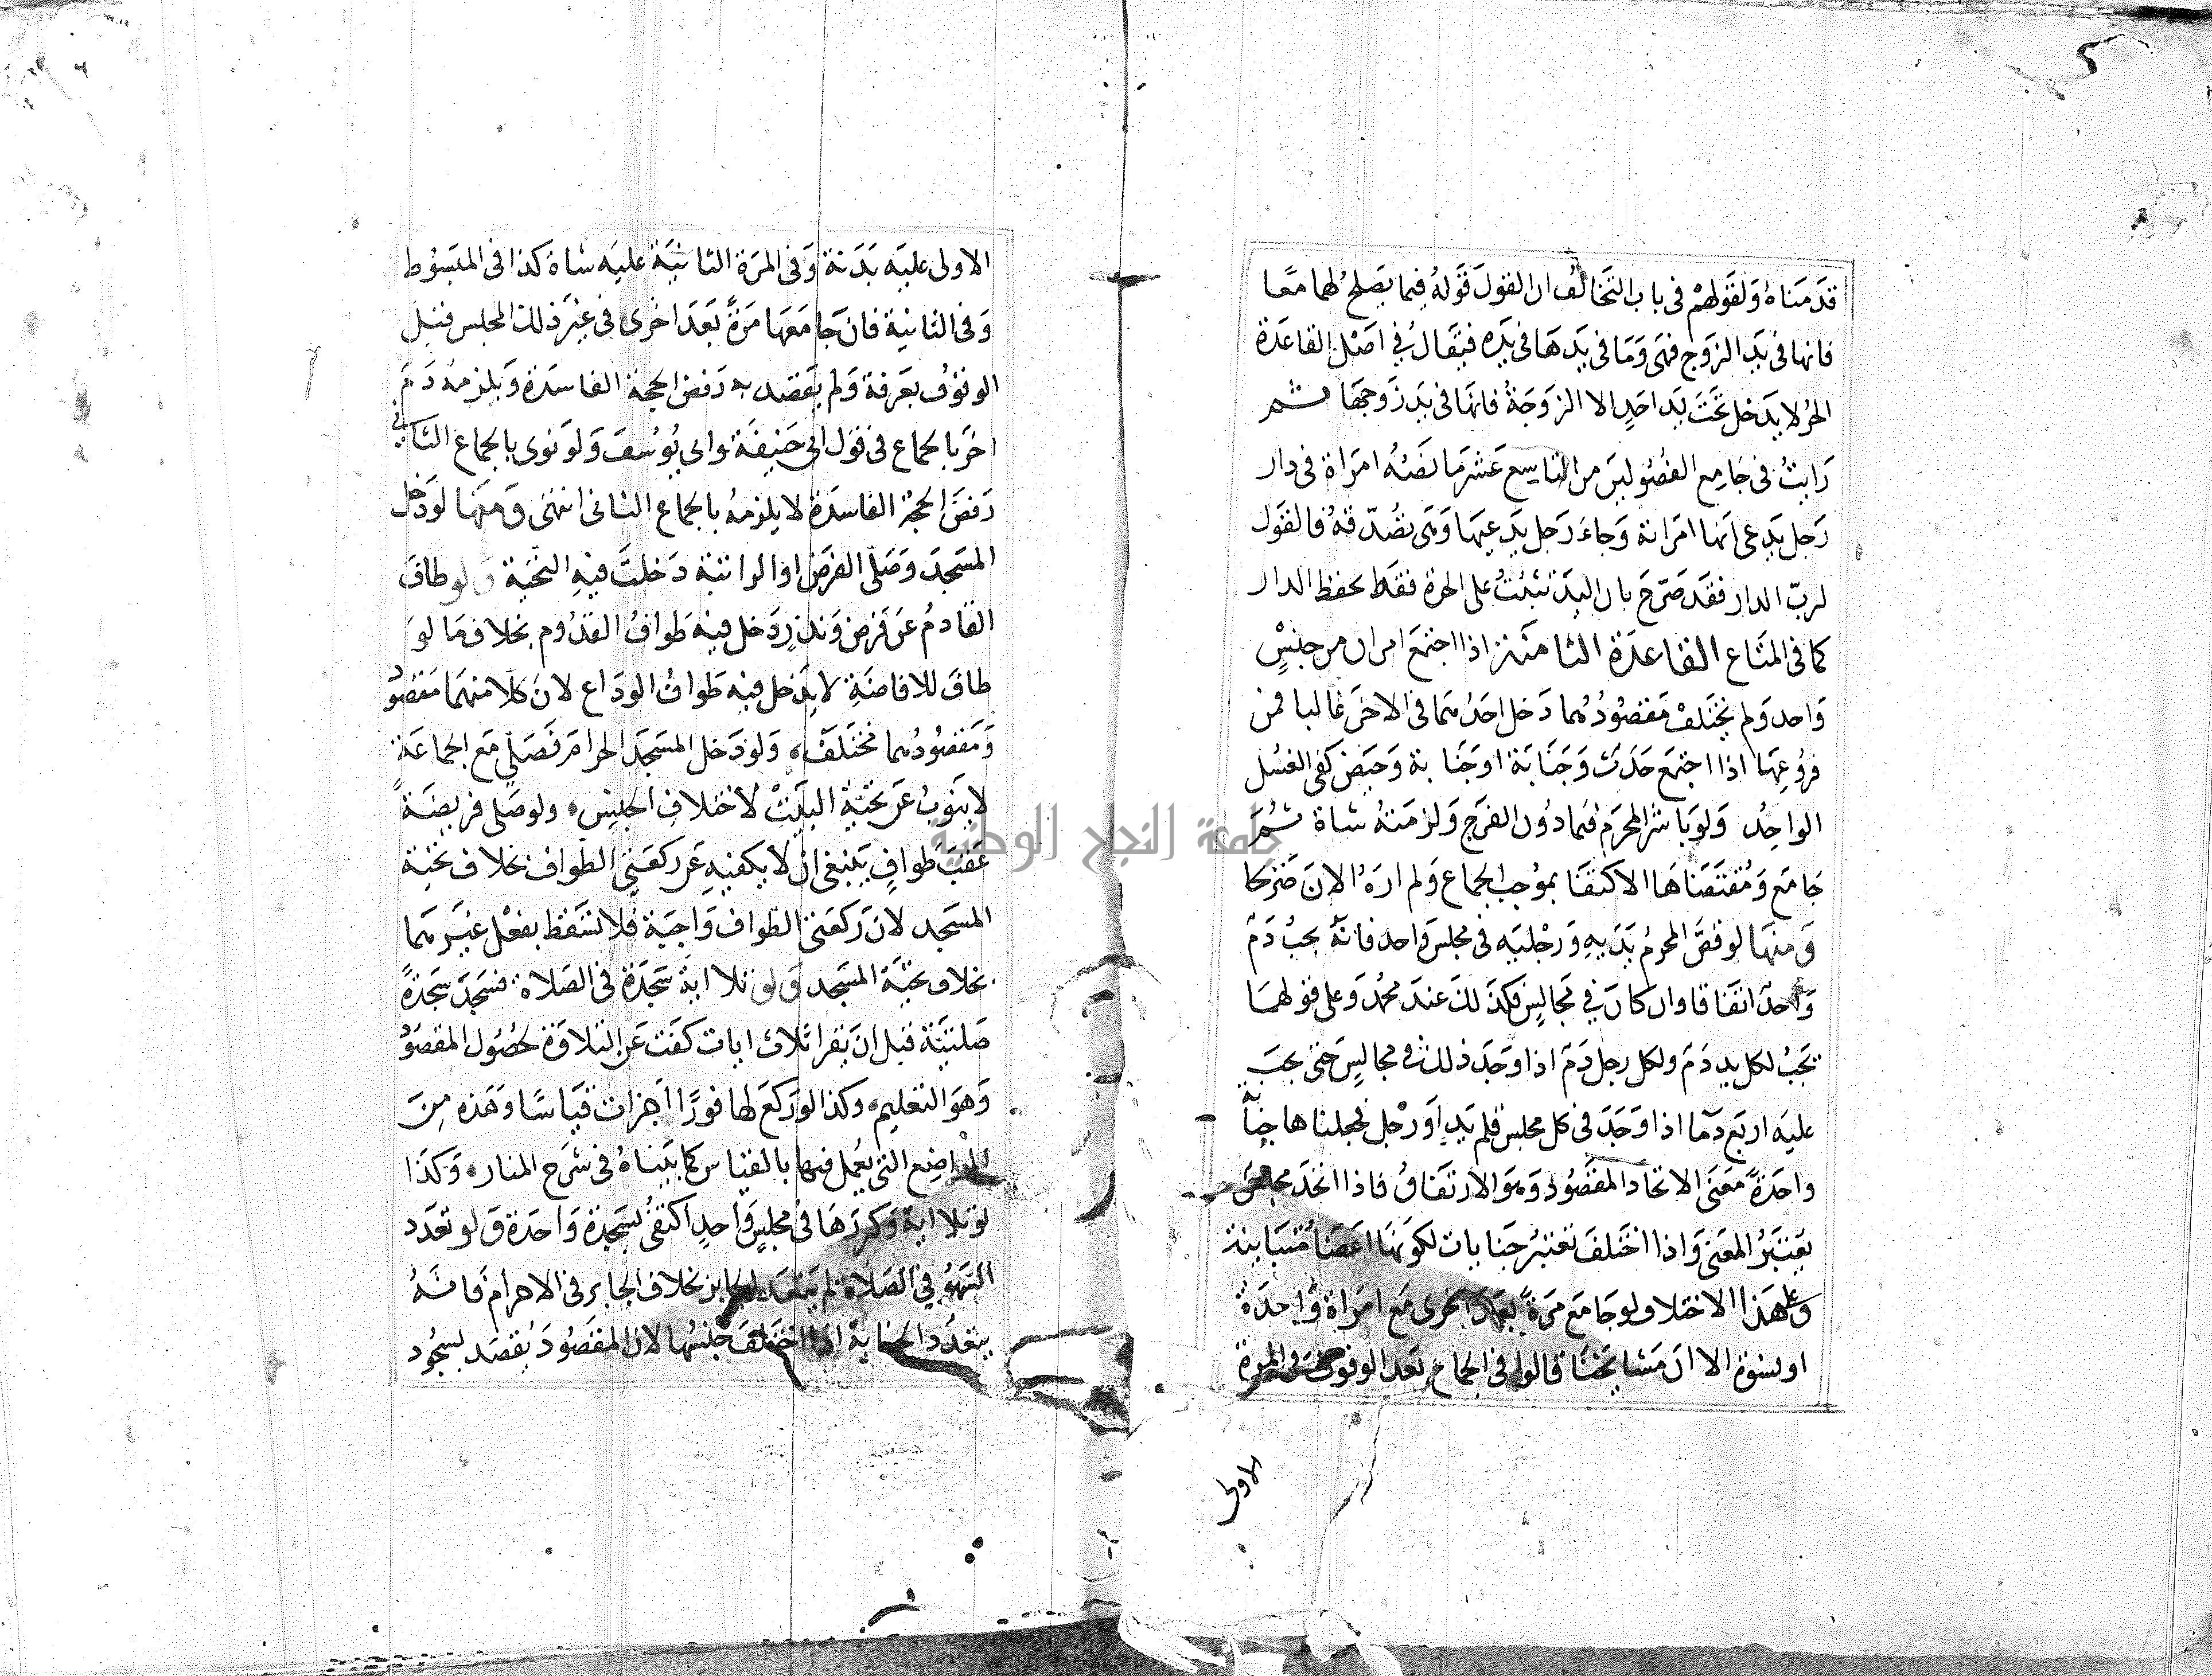 قدمناه ولقولهم فى باب التخالف ان القول قوله فيما يصلح لهما معا
فانها فى يد الزوج فهى وما فى يدها فى يده فيقال في اصل القاعدة
الحر لا يدخل تحت يد احد الا الزوجة فانها فى يد زوجها ثم
رايت فى جامع الفصولين من التاسع عشر ما نصه امراة فى دار
رجل يدعى انها امراته وجاء رجل يدعيها وهى تصدقه فالقول
لرب الدار فقد صرح بان اليد تثبت على الحرة فقط بحفظ الدار
كما فى المتاع القاعدة الثامنة اذا اجتمع امران من جنس
واحد ولم يختلف مقصودهما دخل احدهما فى الاخر غالبا فمن
فروعها اذا اجتمع حدث وجنابة او جنابة وحيض كفى الغسل
الواحد ولو باشر المحرم فيما دون الفرج ولزمته شاة ثم
جامع ومقتضاها الاكتفا بموجب الجماع ولم اره الان صريحا
ومنها لو قص المحرم يديه ورجليه فى مجلس واحد فانه يجب دم
واحد اتفاقا وان كان في مجالس فكذلك عند محمد وعلى قولهما
تجب لكل يد دم ولكل رجل دم اذا وجد ذلك فى مجالس حتى يجب
عليه اربع دما اذا وجد فى كل مجلس قلم يد او رجل فجعلناها جناية
واحدة معنى الاتحاد المقصود وهو الارتفاق فاذا اتحد مجلس
يعتبر المعنى واذا اختلف تعتبر جنايات لكونها اعضا متباينة
وعلى هذا الاختلاف لو جامع مرة بعد اخرى مع امراة واحدة
او نسوة الا ان مشايخنا قالوا فى الجماع بعد الوقوف فى المرة
الاولى
الاولى عليه بدنة وفى المرة الثانية عليه شاة كذا فى المبسوط
وفى الثانية فان جامعها مرة بعد اخرى فى غير ذلك المجلس قبل
الوقوف بعرفة ولم يقصد به رفض الحجة الفاسدة ويلزمه دم
اخر بالجماع فى قول ابى حنيفة وابى يوسف ولو نوى بالجماع الثانى
رفض الحجة الفاسدة لا يلزمه بالجماع الثانى انتهى ومنها لو دخل
المسجد وصلى الفرض او الراتبة دخلت فيه التحية ولو طاف
القادم عن فرض ونذر دخل فيه طواف القدوم بخلاف ما لو
طاف للافاضة لا يدخل فيه طواف الوداع لان كلا منهما مقصود
ومقصودهما مختلف ولو دخل المسجد الحرام فصلى مع الجماعة
لا ينوب عن تحية البيت لاختلاف الجنس ولو صلى فريضة
عقب طواف ينبغى ان لا يكفيه عن ركعتى الطواف بخلاف تحية
المسجد لان ركعتى الطواف واجبة فلا تسقط بفعل غيرهما
بخلاف تحية المسجد ولو تلا اية سجدة فى الصلاة فسجد سجدة
صلبية قبل ان يقرا ثلاث ايات كفت عن التلاوة لحصول المقصود
وهو التعليم وكذا لو ركع لها فورا اجزات قياسا وهذه من
المواضع التى يعمل فيها بالقياس كما بيناه فى شرح المنار وكذا
لو تلا اية وكررها فى مجلس واحد اكتفى بسجدة واحدة ولو تعدد
السهو في الصلاة لم يتعدد الجابر بخلاف الجابر فى الاحرام فانه
يتعدد الجناية اذا اختلف جنسها لان المقصود يقصد بسجود
جامعة النجاح الوطنية